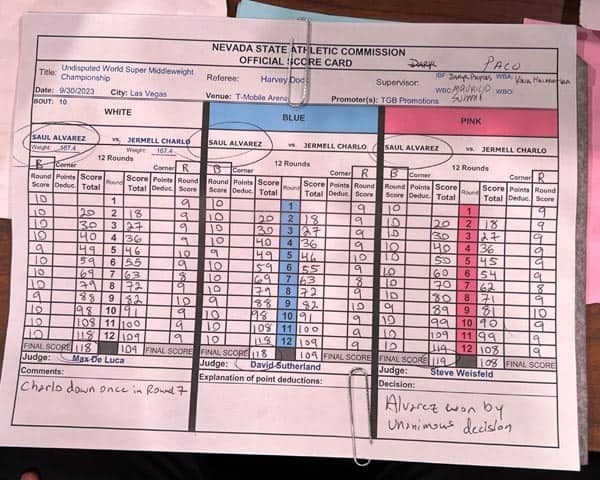 NEVADA STATE ATHLETIC COMMISSION
OFFICIAL SCORE CARD
PACO
Title: Undisputed World Super Middleweight Championship
Referee: Harvey Dock
Supervisor:
IBF: WBA:
WBC: MAURICIO SULAIMAN WBO:
Date: 9/30/2023 City: Las Vegas Venue: T-Mobile Arena Promoter(s): TGB Promotions
BOUT: 10
WHITE BLUE PINK
SAUL ALVAREZ vs. JERMELL CHARLO SAUL ALVAREZ vs. JERMELL CHARLO SAUL ALVAREZ vs. JERMELL CHARLO
Weight: 167.4 Weight: 167.4
12 Rounds 12 Rounds 12 Rounds
B Corner Corner R B Corner R B Corner R
Round Score Points Deduc. Score Total Round Score Total Points Deduc. Round Score Round Score Points Deduc. Score Total Round Score Total Points Deduc. Round Score Round Score Points Deduc. Score Total Round Score Total Points Deduc. Round Score
10 1 9 10 1 9 10 1 9
10 20 2 18 9 10 20 2 18 9 10 20 2 18 9
10 30 3 27 9 10 30 3 27 9 10 30 3 27 9
10 40 4 36 9 10 40 4 36 9 10 40 4 36 9
9 49 5 46 10 9 49 5 46 10 10 50 5 45 9
10 59 6 55 9 10 59 6 55 9 10 60 6 54 9
10 69 7 63 8 10 69 7 63 8 10 70 7 62 8
10 79 8 72 9 10 79 8 72 9 10 80 8 71 9
9 88 9 82 10 9 88 9 82 10 9 89 9 81 10
10 98 10 91 9 10 98 10 91 9 10 99 10 90 9
10 108 11 100 9 10 108 11 100 9 10 109 11 99 9
10 118 12 109 9 10 118 12 109 9 10 119 12 108 9
FINAL SCORE 118 109 FINAL SCORE FINAL SCORE 118 109 FINAL SCORE FINAL SCORE 119 108 FINAL SCORE
Judge: Max De Luca Judge: David Sutherland Judge: Steve Weisfeld
Comments: Explanation of point deductions: Decision:
Charlo down once in Round 7
Alvarez won by
Unanimous decision